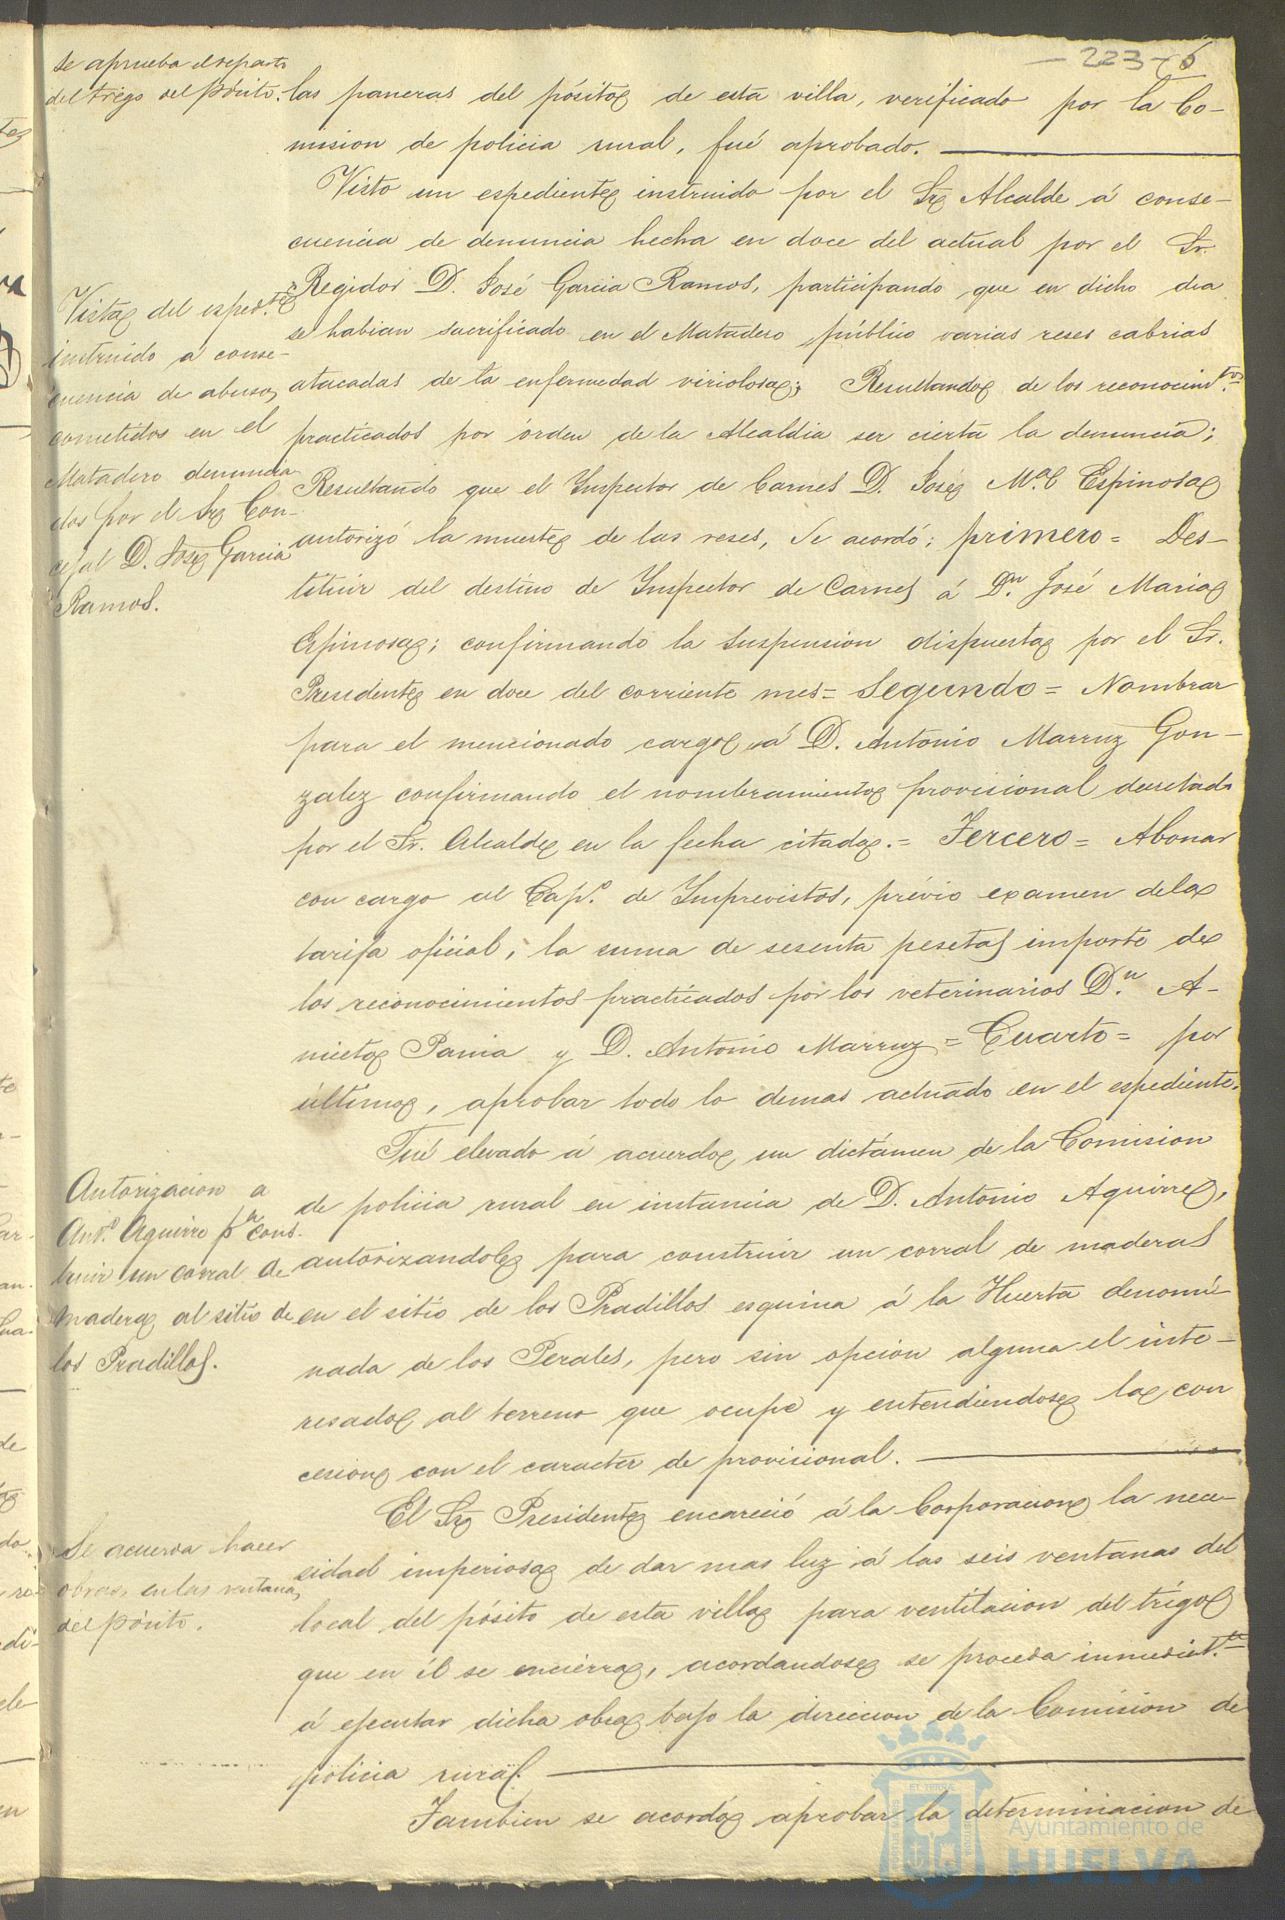 - 223 - 6
se aprueba el reparto
del trigo del pósito.
las paneras del pósito de esta villa, verificado por la Co-
mision de policia rural, fué aprobado.
Visto un espediente instruido por el Sr Alcalde á conse-
cuencia de denuncia hecha en doce del actual por el Sr.
Regidor D. José Garcia Ramos, participando que en dicho dia
se habian sacrificado en el Matadero público varias reses cabrias
atacadas de la enfermedad viriolosa; Resultando de los reconocimtos
practicados por órden de la Alcaldia ser cierta la denuncia;
Resultando que el Inspector de Carnes D. José Mª Espinosa
autorizó la muerte de las reses, Se acordó; primero = Des-
tituir del destino de Inspector de Carnes á Dn. José Maria
Espinosa; confirmando la suspension dispuesta por el Sr.
Presidente en doce del corriente mes = Segundo = Nombrar
para el mencionado cargo á D. Antonio Marruz Gon-
zalez confirmando el nombramiento provisional decretado
por el Sr. Alcalde en la fecha citada. = Tercero = Abonar
con cargo al Capº. de Imprevistos, prévio examen de la
tarifa oficial, la suma de sesenta pesetas importe de
los reconocimientos practicados por los veterinarios Dn. A-
niceto Pania y D. Antonio Marruz = Cuarto = por
último, aprobar todo lo demas actuado en el espediente.
Vista del espedte
instruido á conse-
cuencia de abusos
cometidos en el
Matadero denuncia-
dos por el Sr Con-
cejal D. José Garcia
Ramos.
Fué elevado á acuerdo un dictámen de la Comision
de policia rural en instancia de D. Antonio Aguirre,
autorizandole para construir un corral de maderas
en el sitio de los Pradillos esquina á la Huerta denomi-
nada de los Perales, pero sin opcion alguna el inte-
resado al terreno que ocupe y entendiendose la con
cesion con el caracter de provisional.
Autorizacion a
Antº. Aguirre pa cons-
truir un corral de
madera al sitio de
los Pradillos.
El Sr Presidente encareció á la Corporacion la nece-
sidad imperiosa de dar mas luz á las seis ventanas del
local del pósito de esta villa para ventilacion del trigo
que en él se encierra, acordandose se proceda inmediatte
á ejecutar dicha obra bajo la direccion de la Comision de
policia rural.
Se acuerda hacer
obras en las ventanas
del pósito.
Tambien se acordó aprobar la determinacion de
Ayuntamiento de
HUELVA